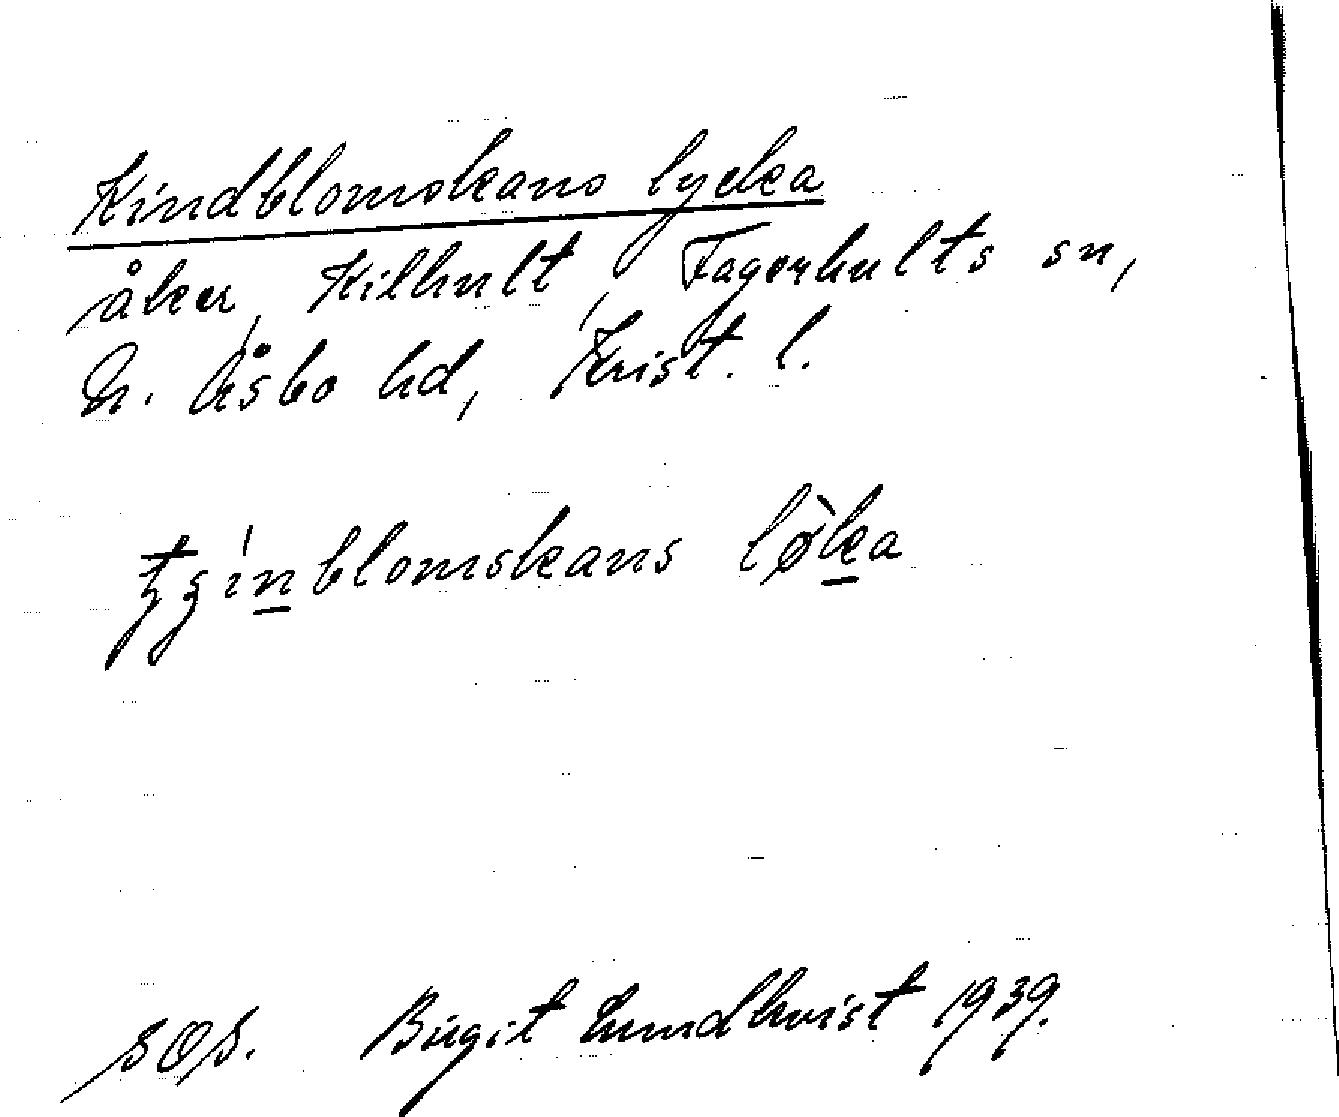 Kindblomskans lycka
åker, Kilhult, Fagerhults sn,
N. Åsbo hd, Krist. l.
blomskans
SOS. Birgit Lundkvist 1939.